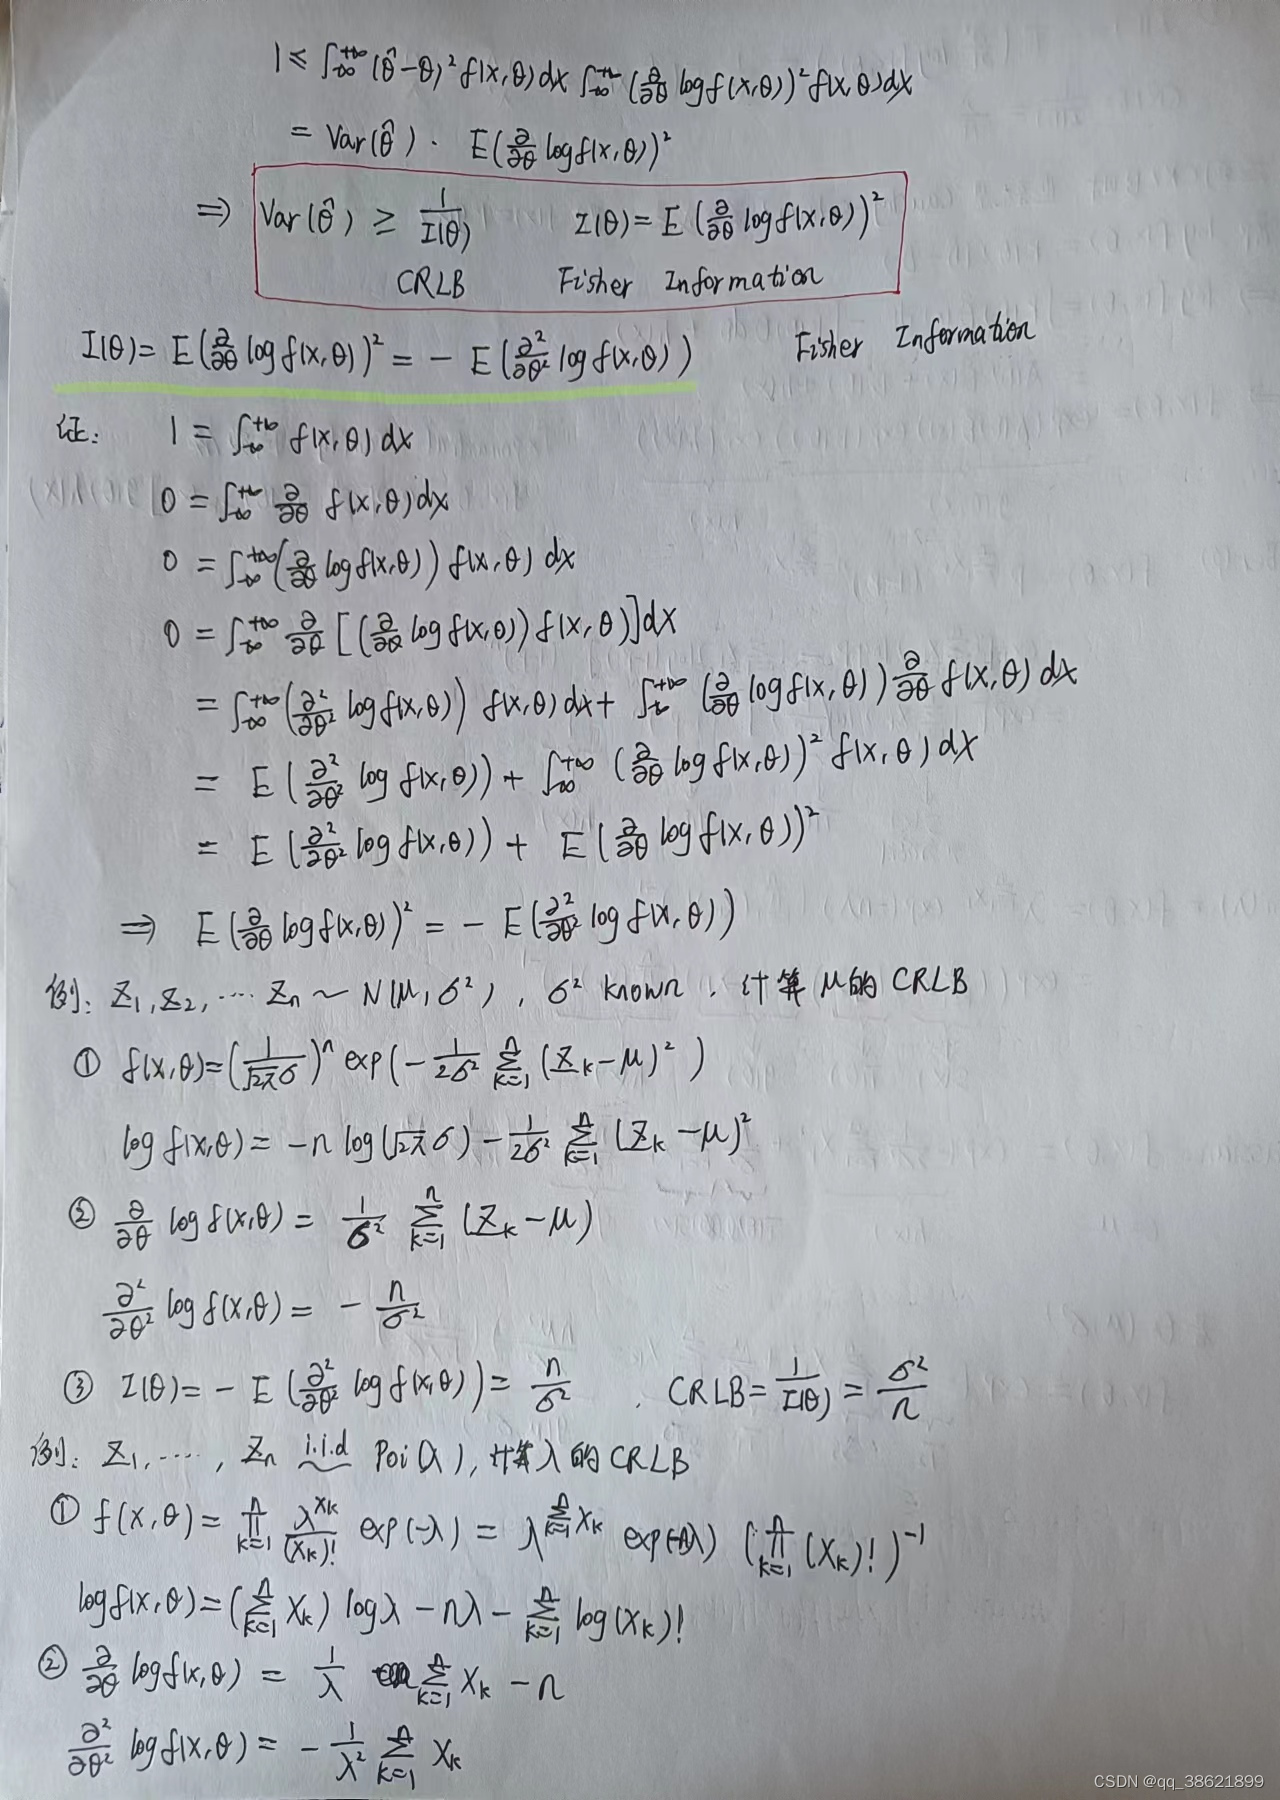 1 ≤ ∫_{-∞}^{+∞} (θ̂-θ)² f(x,θ) dx ∫_{-∞}^{+∞} (∂/∂θ log f(x,θ))² f(x,θ) dx
= Var(θ̂) · E(∂/∂θ log f(x,θ))²
⇒ Var(θ̂) ≥ 1/I(θ) I(θ) = E(∂/∂θ log f(x,θ))²
CRLB Fisher Information
I(θ) = E(∂/∂θ log f(x,θ))² = - E(∂²/∂θ² log f(x,θ)) Fisher Information
证: 1 = ∫_{-∞}^{+∞} f(x,θ) dx
0 = ∫_{-∞}^{+∞} ∂/∂θ f(x,θ) dx
0 = ∫_{-∞}^{+∞} (∂/∂θ log f(x,θ)) f(x,θ) dx
0 = ∫_{-∞}^{+∞} ∂/∂θ [(∂/∂θ log f(x,θ)) f(x,θ)] dx
= ∫_{-∞}^{+∞} (∂²/∂θ² log f(x,θ)) f(x,θ) dx + ∫_{-∞}^{+∞} (∂/∂θ log f(x,θ)) ∂/∂θ f(x,θ) dx
= E(∂²/∂θ² log f(x,θ)) + ∫_{-∞}^{+∞} (∂/∂θ log f(x,θ))² f(x,θ) dx
= E(∂²/∂θ² log f(x,θ)) + E(∂/∂θ log f(x,θ))²
⇒ E(∂/∂θ log f(x,θ))² = - E(∂²/∂θ² log f(x,θ))
例: Z₁, Z₂, … Zn ~ N(μ, σ²), σ² known, 计算μ的CRLB
① f(x,θ) = (1/(√2π σ))ⁿ exp(- 1/2σ² Σ_{k=1}^{n} (Zk-μ)²)
log f(x,θ) = -n log(√2π σ) - 1/2σ² Σ_{k=1}^{n} (Zk-μ)²
② ∂/∂θ log f(x,θ) = 1/σ² Σ_{k=1}^{n} (Zk-μ)
∂²/∂θ² log f(x,θ) = - n/σ²
③ I(θ) = - E(∂²/∂θ² log f(x,θ)) = n/σ² , CRLB = 1/I(θ) = σ²/n
例: Z₁, …, Zn i.i.d ~ Poi(λ), 计算λ的CRLB
① f(x,θ) = Π_{k=1}^{n} λ^{Xk}/(Xk)! exp(-λ) = λ^{Σ_{k=1}^{n} Xk} exp(-nλ) (Π_{k=1}^{n} (Xk)!)⁻¹
log f(x,θ) = (Σ_{k=1}^{n} Xk) log λ - nλ - Σ_{k=1}^{n} log(Xk)!
② ∂/∂θ log f(x,θ) = 1/λ Σ_{k=1}^{n} Xk - n
∂²/∂θ² log f(x,θ) = - 1/λ² Σ_{k=1}^{n} Xk
CSDN @qq_38621899